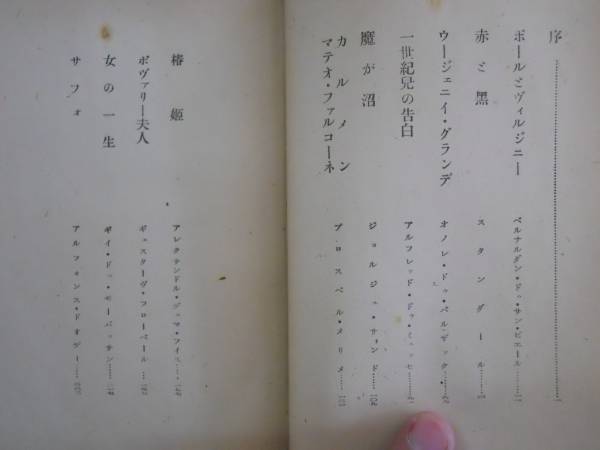 序
ポールとヴィルジニー ベルナルダン・ドゥ・サン・ピエール
赤と黒 スタンダール
ウージェニイ・グランデ オノレ・ドゥ・バルザック
一世紀児の告白 アルフレッド・ドゥ・ミュッセ
魔が沼 ジョルジュ・サンド
カルメン
マテオ・ファルコーネ プロスペル・メリメ
椿姫 アレクサンドル・デュマ・フイス
ボヴァリー夫人 ギュスターヴ・フローベール
女の一生 ギイ・ドゥ・モーパッサン
サフォ アルフォンス・ドオデー